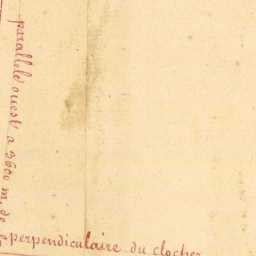 parallele ouest a 3600 m. de
perpendiculaire du clocher